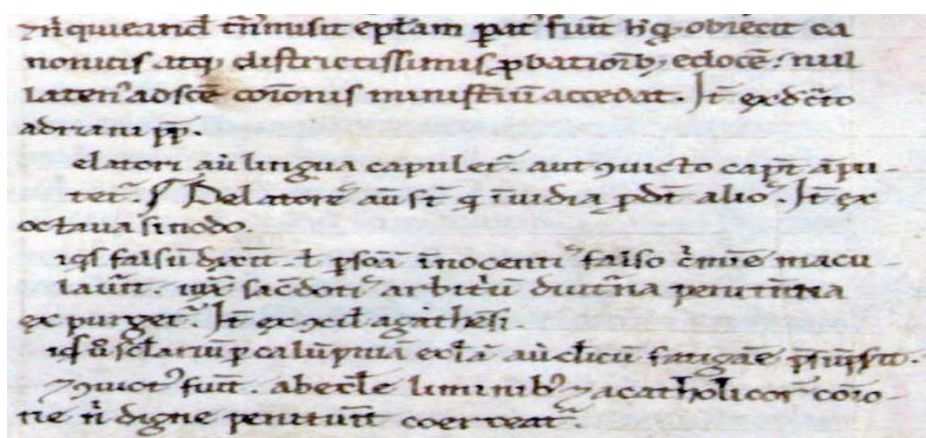 ⁊ n̄ quieand̄ cr̄īm̄ īusit ep̄l̄am ꝑat᷒ fuit̄ h̄ q̄ obiecit ca
nonicis atq; districtissimis ꝓbatioīb; edocē. nul
laten᷒ ad scē com̄onis ministiū accedat. It̄ ex dc̄to
adriani pp̄.
elatori aū lingua capulet᷒. aut ꝯuicto capt̄ āpu-
tet᷒. Delatore᷒ aū st̄ q̄ īuidia ꝓdt̄ alio᷒. It̄ ex
octaua sinodo.
iq̄s falsū dixit̄. ł ꝑsoā īnocenti᷒ falso c̄mīe macu-
lauit̄. iux̄ sac̄doti᷒ arbit̄ū diut̄na penitn̄tia
ex purget᷒. It̄ ex ꝯcil̄ agathēsi.
iq̄s u̾ scl̄ariū ꝑ calūpniā eccl̄ā aū cl̄icū fatigāe p̄sūpsit̄.
⁊ ꝯuict᷒ fuit̄. ab eccl̄e liminib᷒ ⁊ a catholicoꝝ com̄o-
ne n̄ digne penituit̄ coerceat᷒.